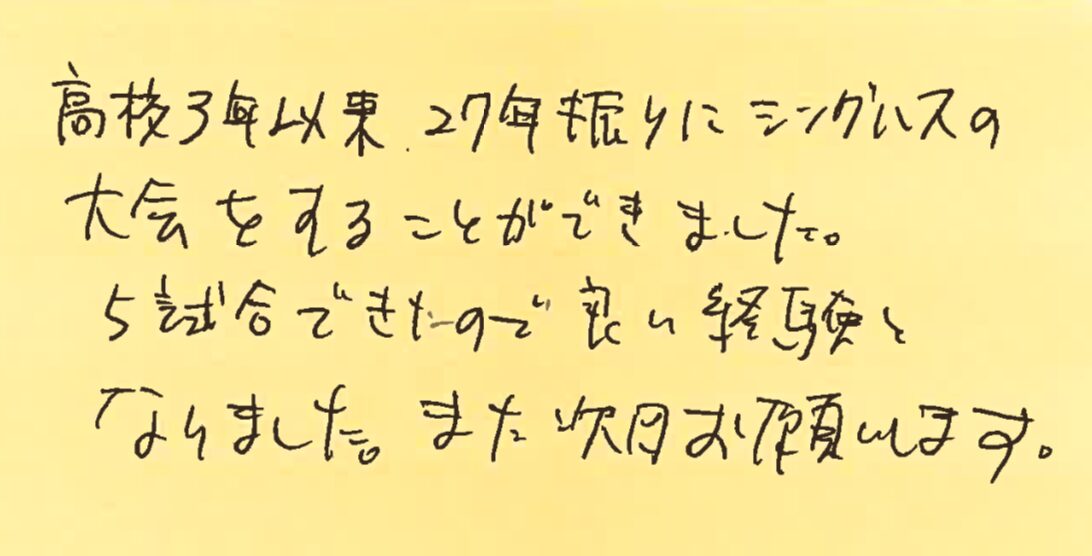 高校3年以来.27年振りにシングルスの
大会をすることができました。
5試合できたので良い経験と
なりました。また次回お願いします。